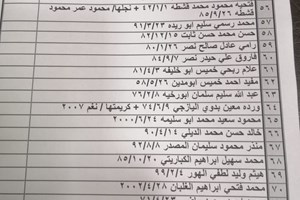 ٥٦ فتحيه محمود محمد قشطه ٤٢/١/١ + نجلها/ محمود عمر محمود
قشطه ٨٥/٩/٢٦
٥٧ محمد رسمي سليم ابو ريده ٩١/٣/٢٣
٥٨ محمد حسن حسن ثابت ٨٢/١٢/١٥
٥٩ رامي عادل صالح نصر ٨٠/١/٢٦
٦٠ فاروق علي حيدر نصر ٨٤/٩/٧
٦١ علام ربحي خميس ابو خليفه ٨١/٤/٣
٦٢ مفيد احمد خميس ابومدين ٥٨/٥/٢٦
٦٣ عبد الله سليم سلمان ابورخيه ٧٦/٢/٨
٦٤ ورده معين بدوي اليازجي ٧٤/٦/٩ + كريمتها / نغم ٢٠٠٧
٦٥ محمود سعيد محمود ابو سليمه ٢٠٠٠/٦/٢٤
٦٦ خالد حسن محمد الديلي ٩٠/٤/١٤
٦٧ منذر محمود سليمان المصدر ٩٢/٨/٨
٦٨ محمد سهيل ابراهيم الكباريتي ٨٥/١٠/٢٠
٦٩ هيثم وليد لطفي الهور ٩٩/٢/٤
٧٠ محمد فتحي ابراهيم الغلبان ٢٠٠٢/٤/٢٨